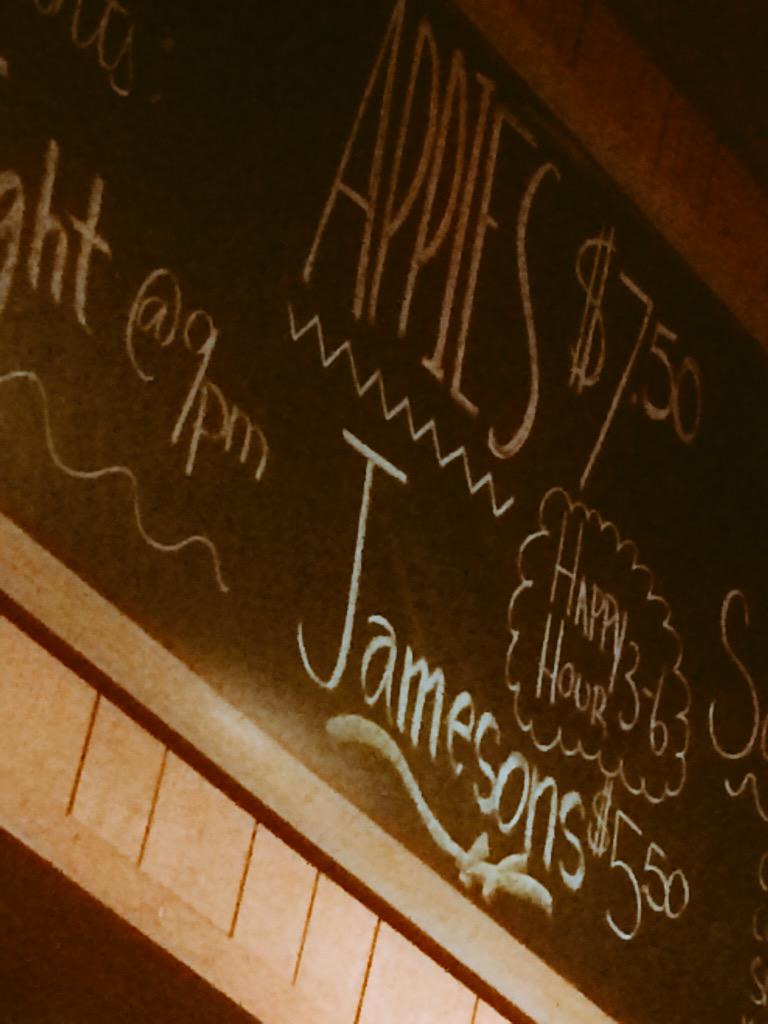 @9
pm
APPIES $7.50
HAPPY
HOUR 3-6
Jamesons $5.50